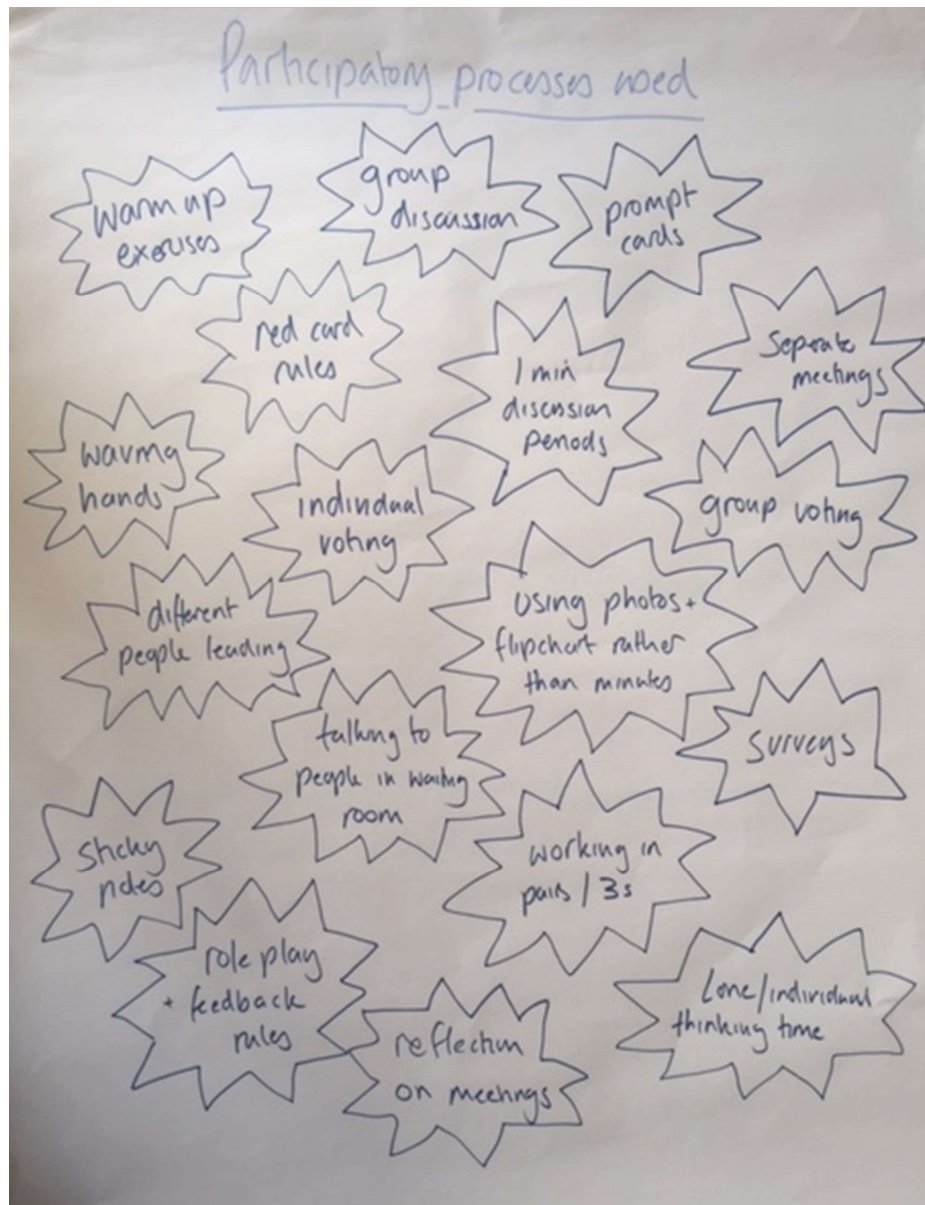 Participatory processes used
warm up
exercises
group
discussion
prompt
cards
red card
rules
1 min
discussion
periods
Seperate
meetings
waving
hands
individual
voting
group voting
different
people leading
Using photos +
flipchart rather
than minutes
talking to
people in waiting
room
surveys
sticky
notes
working in
pairs / 3s
role play
+ feedback
rules
reflection
on meetings
Lone/individual
thinking time